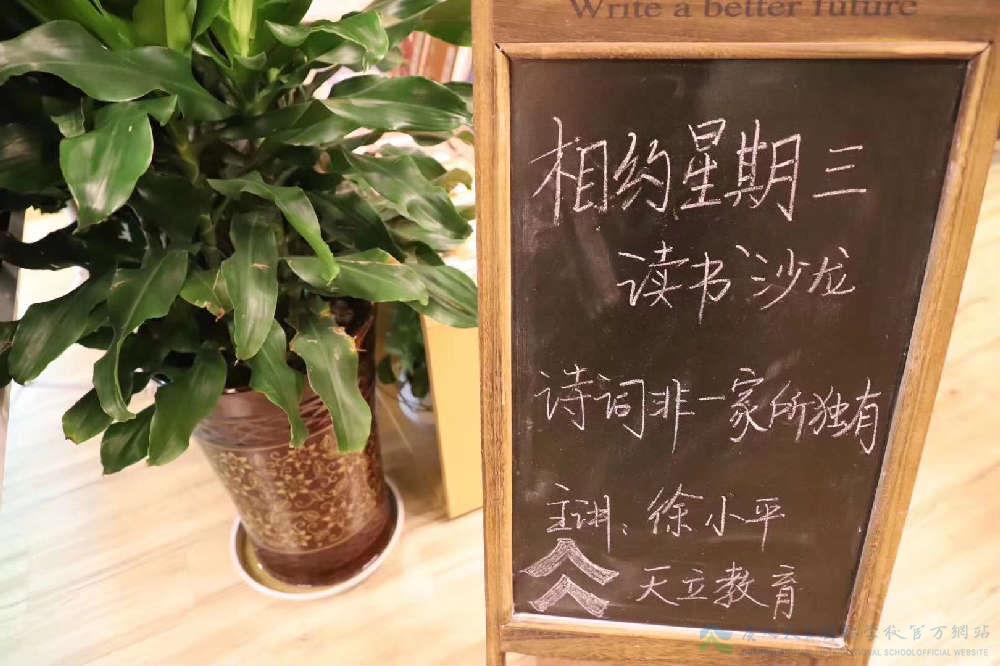 Write a better future
相约星期三
读书沙龙
诗词非一家所独有
主讲:徐小平
天立教育
学校官方網站
INTERNATIONAL SCHOOL OFFICIAL WEBSITE